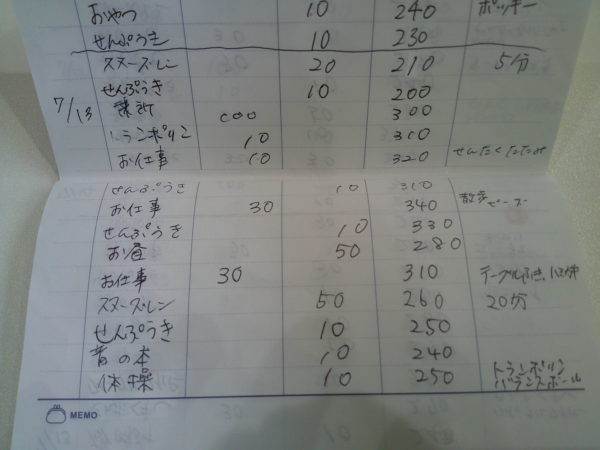 おやつ 10 240 ポッキー
せんぷうき 10 230
スヌーズレン 20 210 5分
せんぷうき 10 200
7/13 100 300
トランポリン 10 310
お仕事 10 320 せんたくたたみ
せんぷうき 10 310
お仕事 30 340 ビーズ
せんぷうき 10 330
お昼 50 280
お仕事 30 310 テーブルふき、
スヌーズレン 50 260 20分
せんぷうき 10 250
音の本 10 240
体操 10 250 トランポリン
バランスボール
MEMO